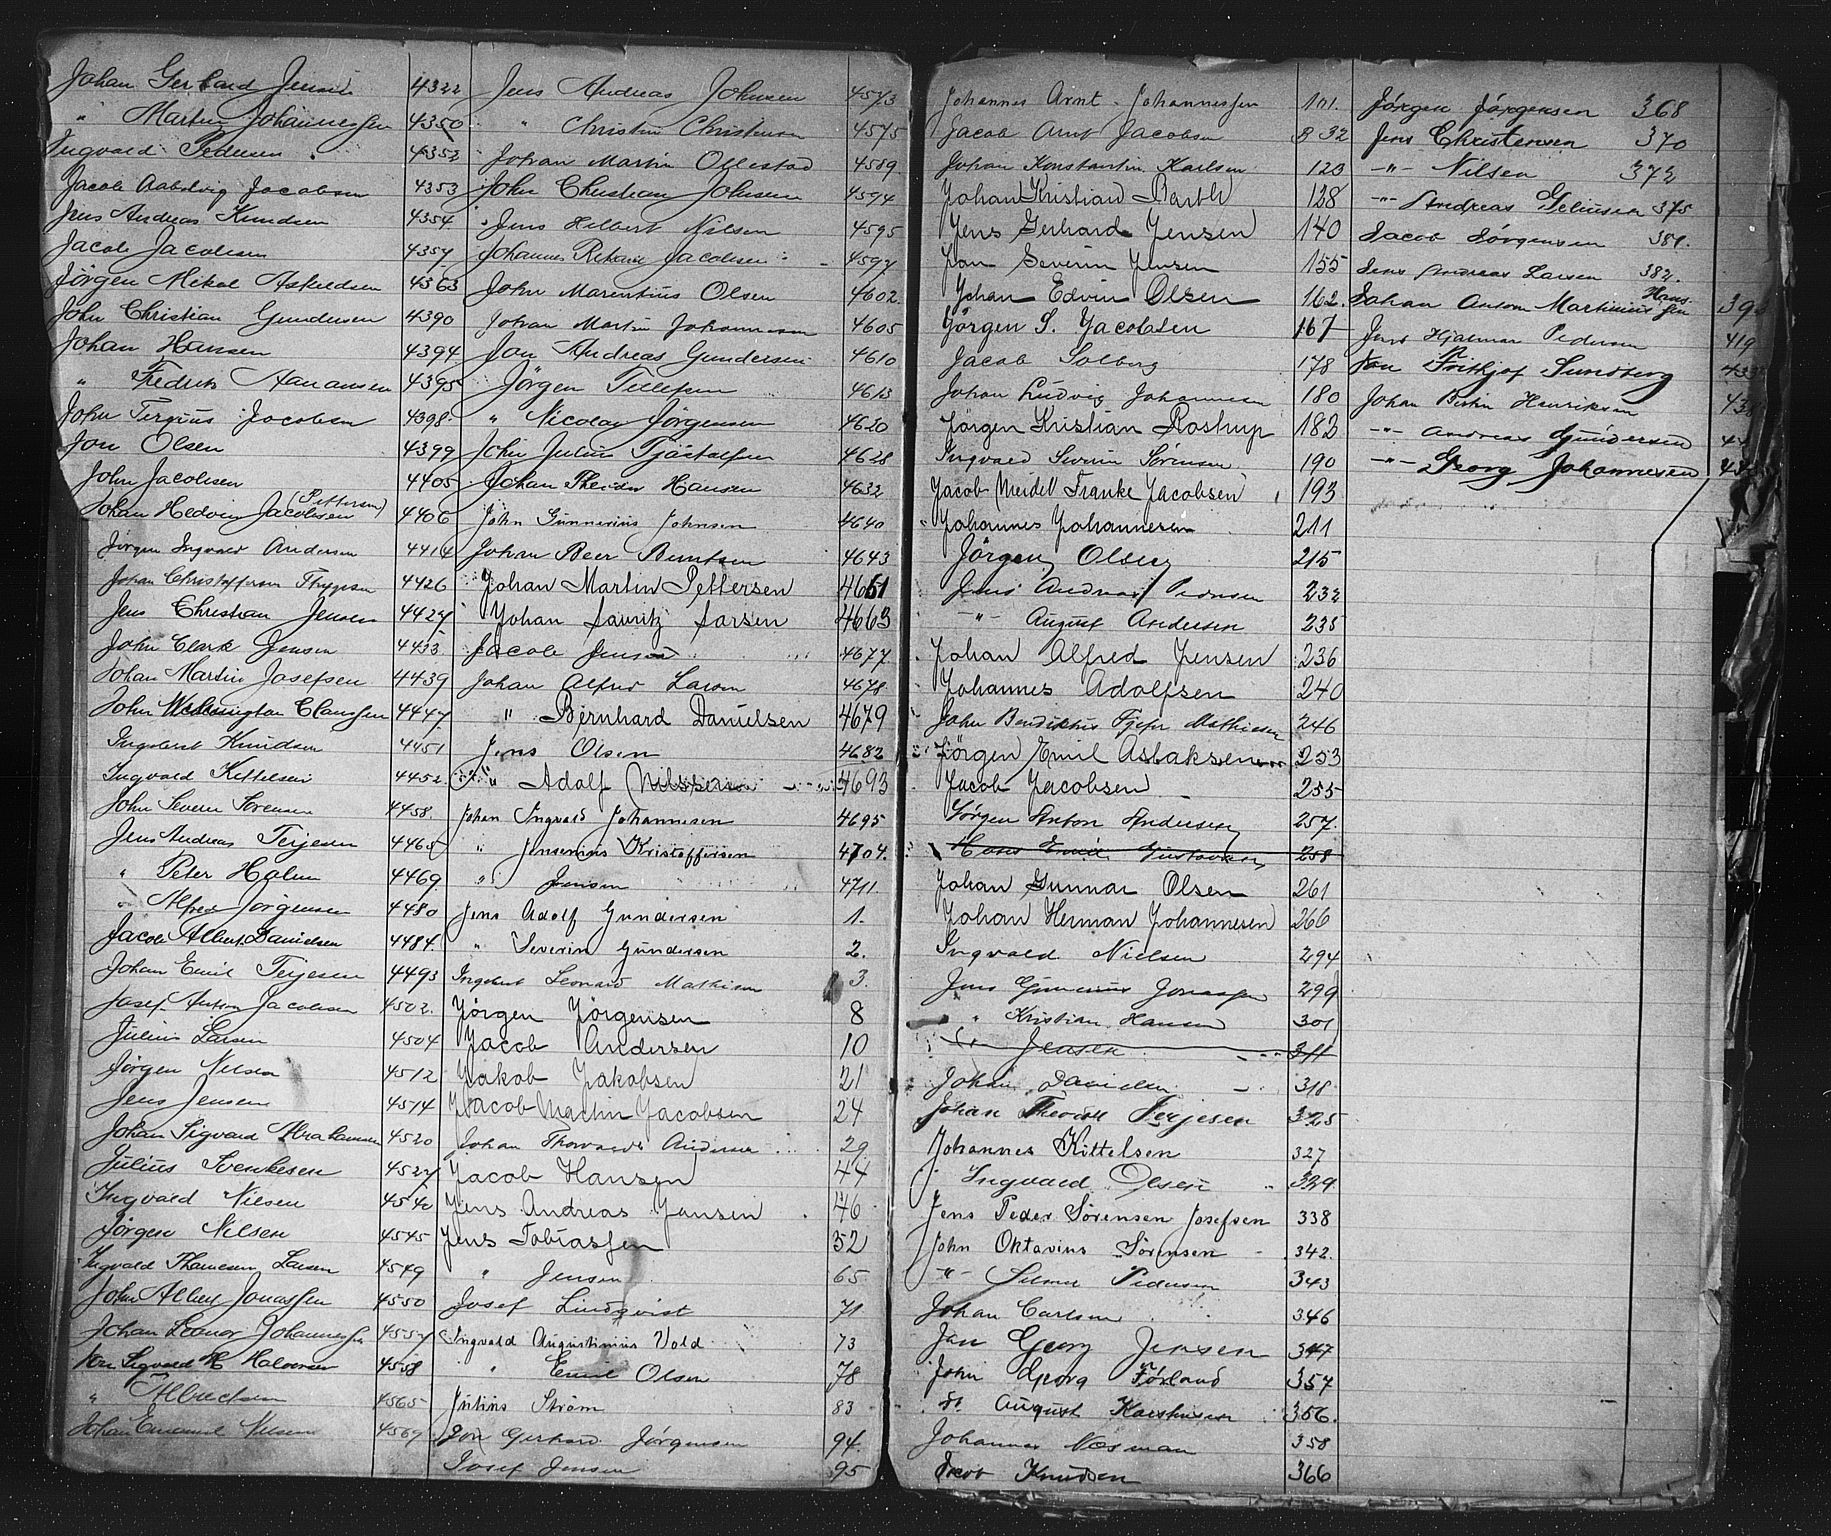 Johan Gerhard Jensen 4322
" Martin Johannessen 4350
Ingvald Pedersen 4352
Jacob Aabolvig Jacobsen 4353
Jens Andreas Knudsen 4354
Jacob Jacobsen 4357
Jörgen Mikal Askildsen 4363
John Christian Gundersen 4390
Johan Hansen 4394
" Fredrik Aanansen 4395
John Tergius Jacobsen 4398
Jon Olsen 4399
John Jacobsen 4405
Johan Hedvin Jacobsen (Pettersen) 4406
Jörgen Ingvald Andersen 4414
Johan Christoffersen Thygesen 4426
Jens Christian Jensen 4427
John Clark Jensen 4433
Johan Martin Josefsen 4439
John Washington Clausen 4447
Ingebret Knudsen 4451
Ingvald Kittelsen 4452
John Severin Sörensen 4458
Jens Andreas Terjesen 4465
" Peter Holm 4469
" Alfred Jörgensen 4480
Jacob Albert Danielsen 4484
Johan Emil Terjesen 4493
Josef Anton Jacobsen 4502
Julius Larsen 4504
Jörgen Nilsen 4512
Jens Jensen 4514
Johan Sigvald Abrahamsen 4520
Julius Svenkesen 4527
Ingvald Nilsen 4540
Jörgen Nilsen 4545
Ingvald Thomesen Larsen 4549
John Albert Jonassen 4550
Johan Leonor Johannessen 4557
Jon Sigvald H Halvorsen 4558
" Albrectsen 4565
Johan Emanuel Nilsen 4569
Jens Andreas Johnsen 4573
" Christin Christensen 4575
Johan Martin Ollestad 4589
John Christian Johnsen 4594
Jens Helbert Nilsen 4595
Johannes Rekave Jacobsen 4597
John Marentius Olsen 4602
Johan Martin Johannessen 4605
Jon Andreas Gundersen 4610
Jörgen Tellefsen 4613
" Nicolay Jörgensen 4620
John Julius Fjästolfsen 4628
Johan Theodor Hansen 4632
John Gunnerius Johnsen 4640
Johan Beer Berntsen 4643
Johan Martin Pettersen 4651
Johan Lauritz Larsen 4663
Jacob Jensen 4677
Johan Alfred Larsen 4678
" Bernhard Danielsen 4679
Jens Olsen 4682
" Adolf Nilssen 4693
Johan Ingvald Johannesen 4695
" Jensenius Kristoffersen 4704
" Jensen 4711
Jens Adolf Gundersen 1.
" Severin Gundersen 2.
Ingebret Leonard Mathisen 3.
Jörgen Jörgensen 8
Jacob Andersen 10
Jakob Jakobsen 21
Jacob Martin Jacobsen 24
Johan Thorvald Andersen 29
Jacob Hansen 44
Jens Andreas Jansen 46
Jens Tobiassen 52
" Jensen 65
Josef Lindqvist 71
Ingvald Augustinius Vold 73
" Emil Olsen 78
Julius Ström 83
Jon Gerhard Jörgensen 94.
Josef Jensen 95
Johannes Arnt Johannessen 101.
Jacob Arnt Jacobsen 32
Johan Konstantin Karlsen 123
Johan Kristian Barth 128
Jens Gerhard Jensen 140
Jon Severin Jensen 155
Johan Edvin Olsen 162.
Jörgen S. Jacobsen 167
Jacob Solberg 178
Johan Ludvig Johannesen 180
Jörgen Kristian Rostrup 183
Ingvald Severin Sörensen 190
Jacob Meidell Franke Jacobsen 193
Johannes Johannesen 211
Jörgen Olsen 215
Jens Andreas Pedersen 232
" August Andersen 235
Johan Alfred Jensen 236
Johannes Adolfsen 240
John Bendiktius Fjeve Mathisen 246
Jörgen Emil Aslaksen 253
Jacob Jacobsen 255
Jörgen Anton Andersen 257.
Hans Emil Gustavsen 258
Johan Gunnar Olsen 261
Johan Herman Johannesen 266
Ingvald Nielsen 294
Jens Gunerius Jonassen 299
" Kristian Hansen 301
" Jensen 311
Johan Danielsen 318
Johan Theodor Terjesen 325
Johannes Kittelsen 327
Ingvald Olsen 329
Jens Peder Sörensen Josefsen 338
John Oktavius Sörensen 342.
-"- Selmer Pedersen 343
Johan Carlsen 346
Jan Georg Jensen 347
John Georg Förland 357
do. August Karstensen 356.
Johannes Næsman 358
Jacob Knudsen 366
Jörgen Jörgensen 368
Jens Christensen 370
-"- Nilsen 372
-"- Andreas Geliussen 375
Jacob Jörgensen 381.
Jens Andreas Larsen 382.
Johan Anton Martinius Hansen 39
Jens Hjalmar Pedersen 419
Jan Fritjof Sundberg 433
Johan Bertin Henriksen 438
-"- Andreas Gundersen 44
-"- Georg Johannesen 44